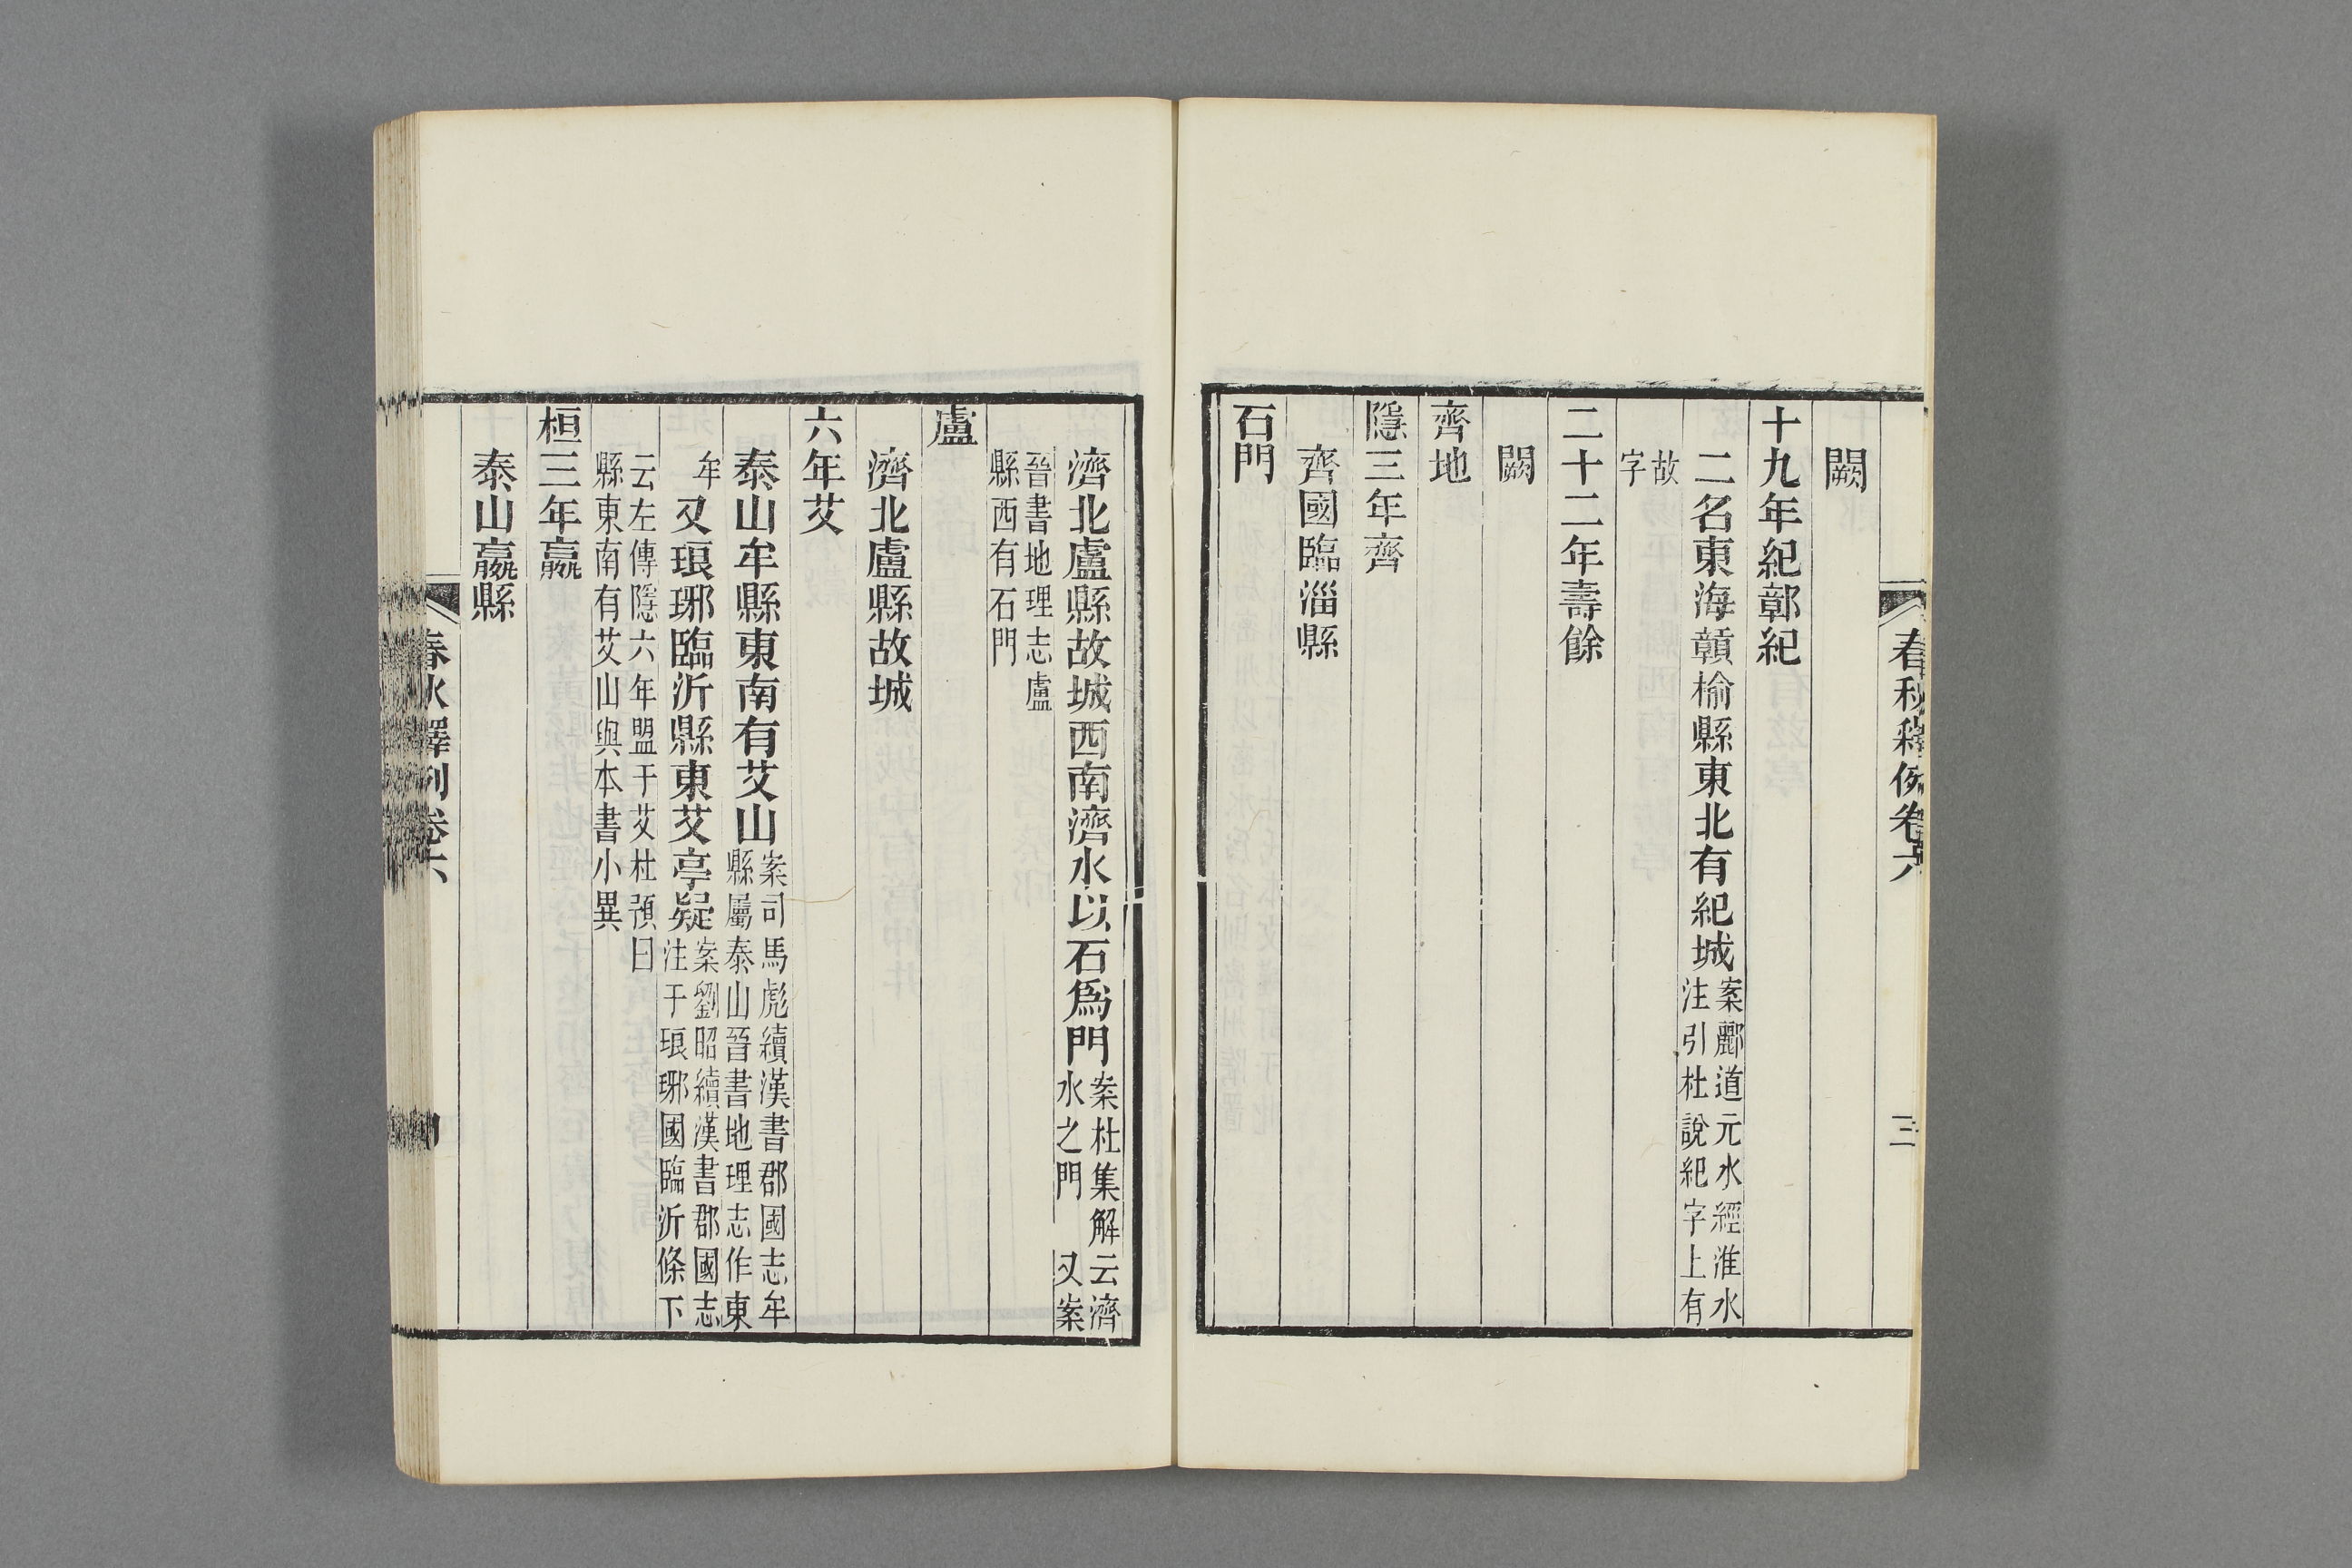 春秋釋例卷六
三
闕
十九年紀鄣紀
二名東海贛榆縣東北有紀城案酈道元水經淮水注引杜說紀字上有
故字
二十二年壽餘
闕
齊地
隱三年齊
齊國臨淄縣
石門
濟北盧縣故城西南濟水以石爲門案杜集解云濟水之門 又案
晉書地理志盧縣西有石門
盧
濟北盧縣故城
六年艾
泰山牟縣東南有艾山案司馬彪續漢書郡國志牟縣屬泰山晉書地理志作東
牟又琅琊臨沂縣東艾亭疑案劉昭續漢書郡國志注于琅琊國臨沂條下
云左傳隱六年盟于艾杜預曰縣東南有艾山與本書小異
桓三年嬴
泰山嬴縣
春秋釋例卷六